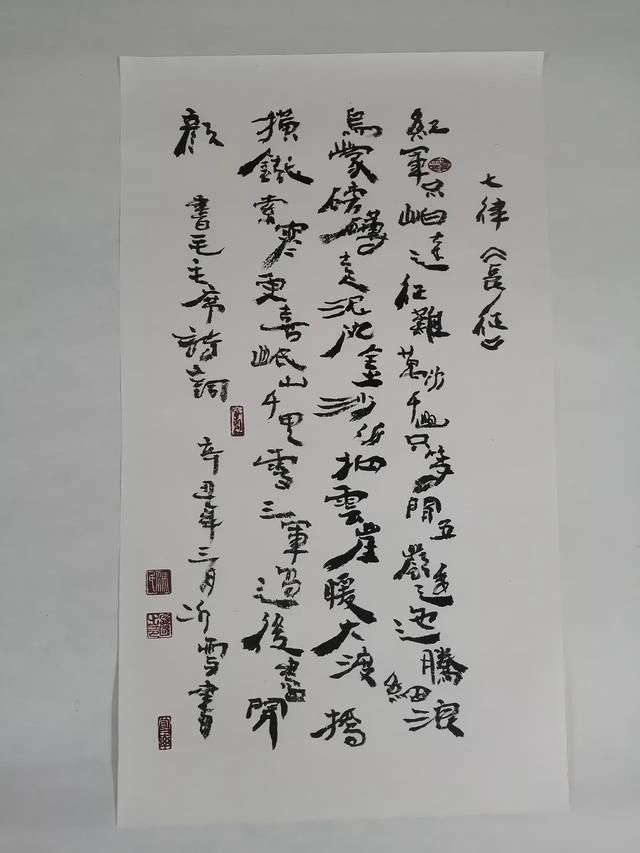 七律《長征》
紅軍不怕遠征難萬水千山只等閒五嶺逶迤騰細浪
烏蒙磅礴走泥丸金沙水拍雲崖暖大渡橋
橫鐵索寒更喜岷山千里雪三軍過後盡開
顏 書毛主席詩詞 辛丑年三月沂雪書